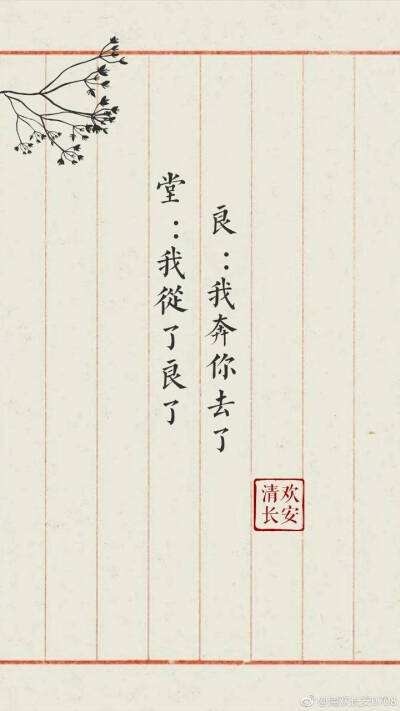 良：我奔你去了
堂：我從了良了
清欢
长安